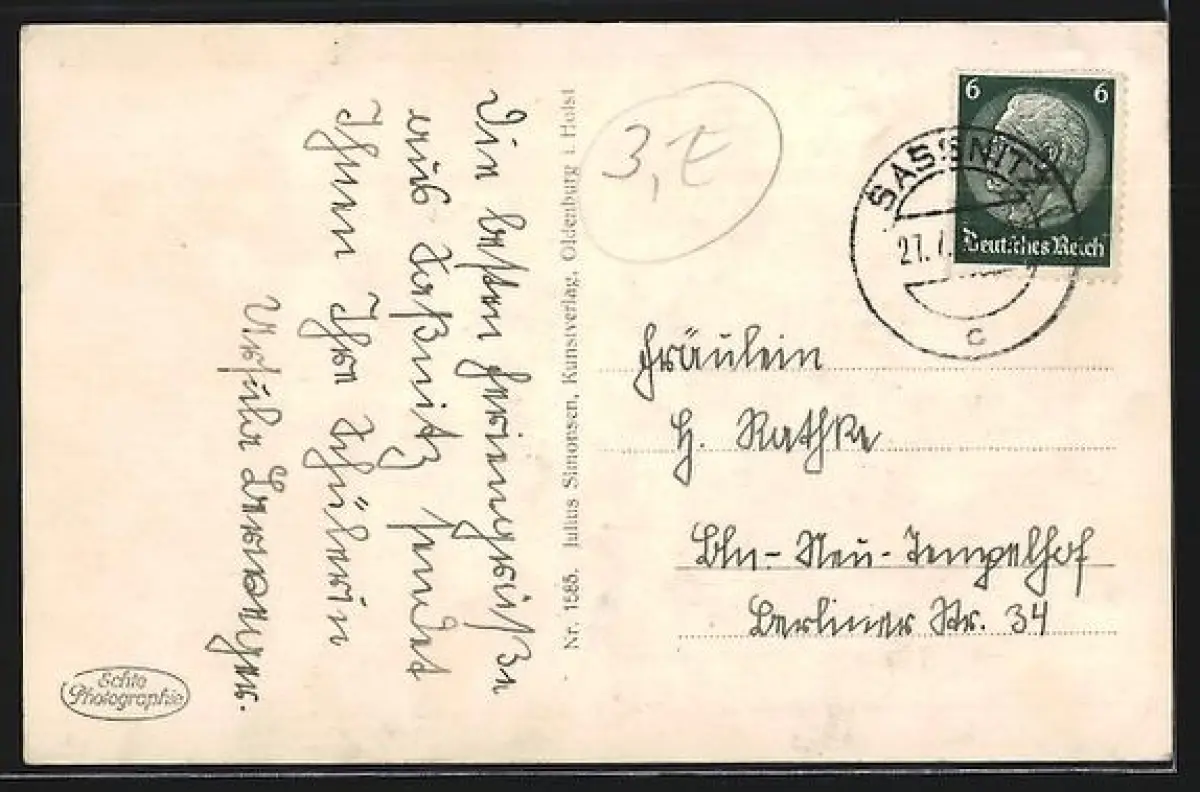 Die besten Feriengrüße
aus Saßnitz sendet
Ihnen Ihre Schülerin
Ursula
Nr. 1585. Julius Simonsen, Kunstverlag, Oldenburg i. Holst
Echte
Photographie
3,
6 6
Deutsches Reich
SASSNITZ
c
Fräulein
H. Rathke
Bln-Neu-Tempelhof
Berliner Str. 34